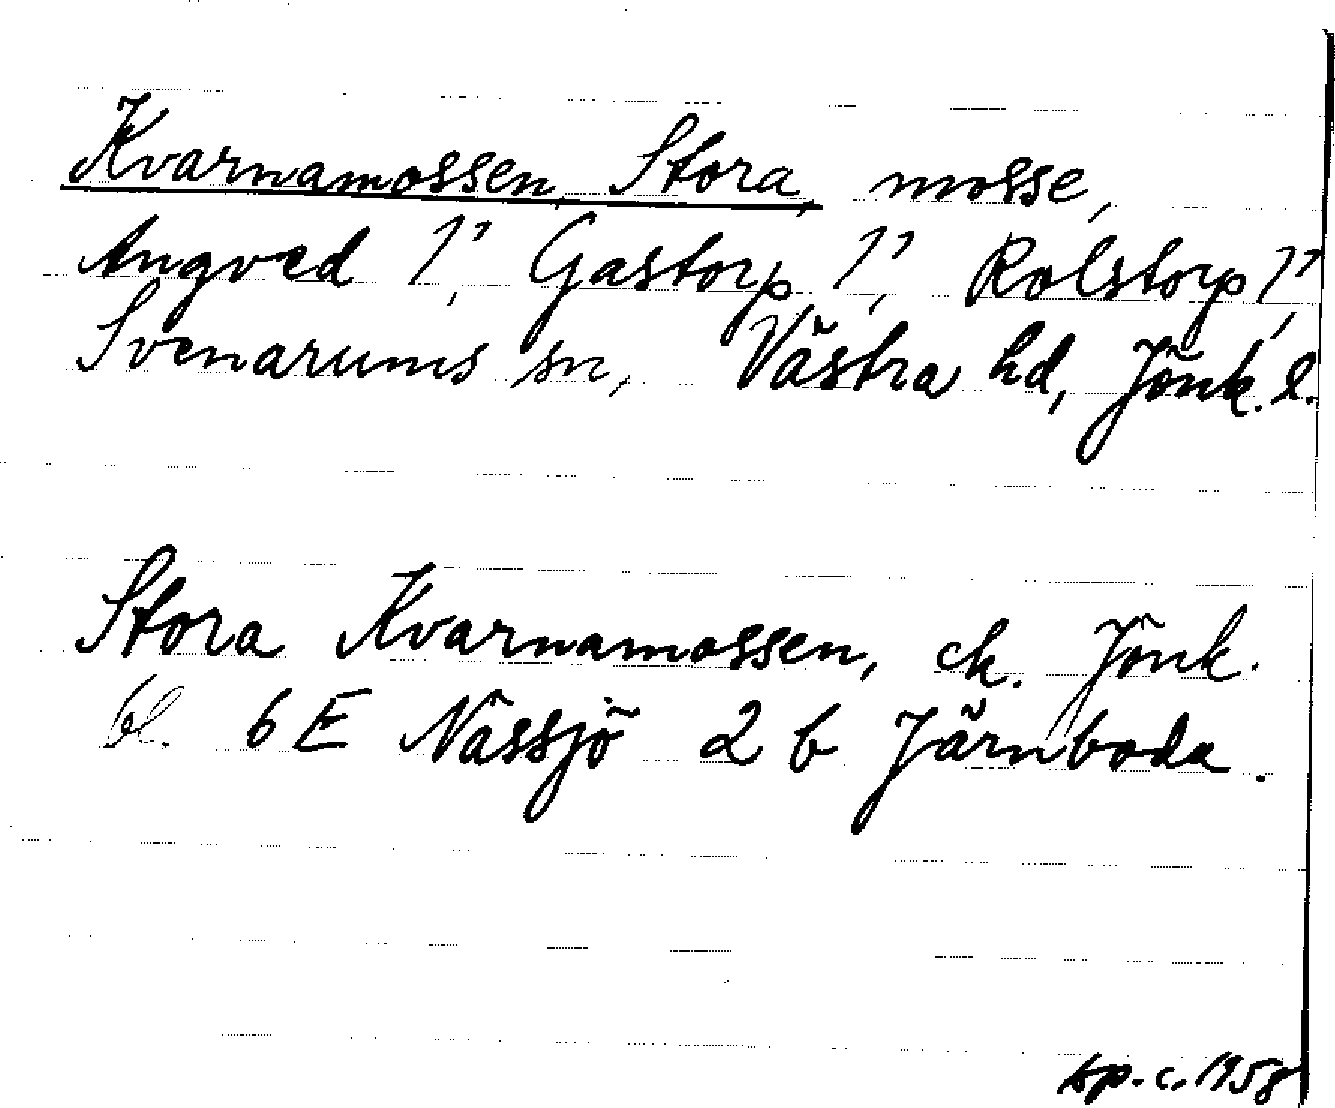 Kvarnamossen, Stora, mosse,
Angved 1:1, Gastorp 1:1, Rolstorp 1:1,
Svenarums sn, Västra hd, Jönk. l.
Stora Kvarnamossen, ek. Jönk.
bl. 6 E Nässjö 2 b Järnboda.
sp. c. 1958